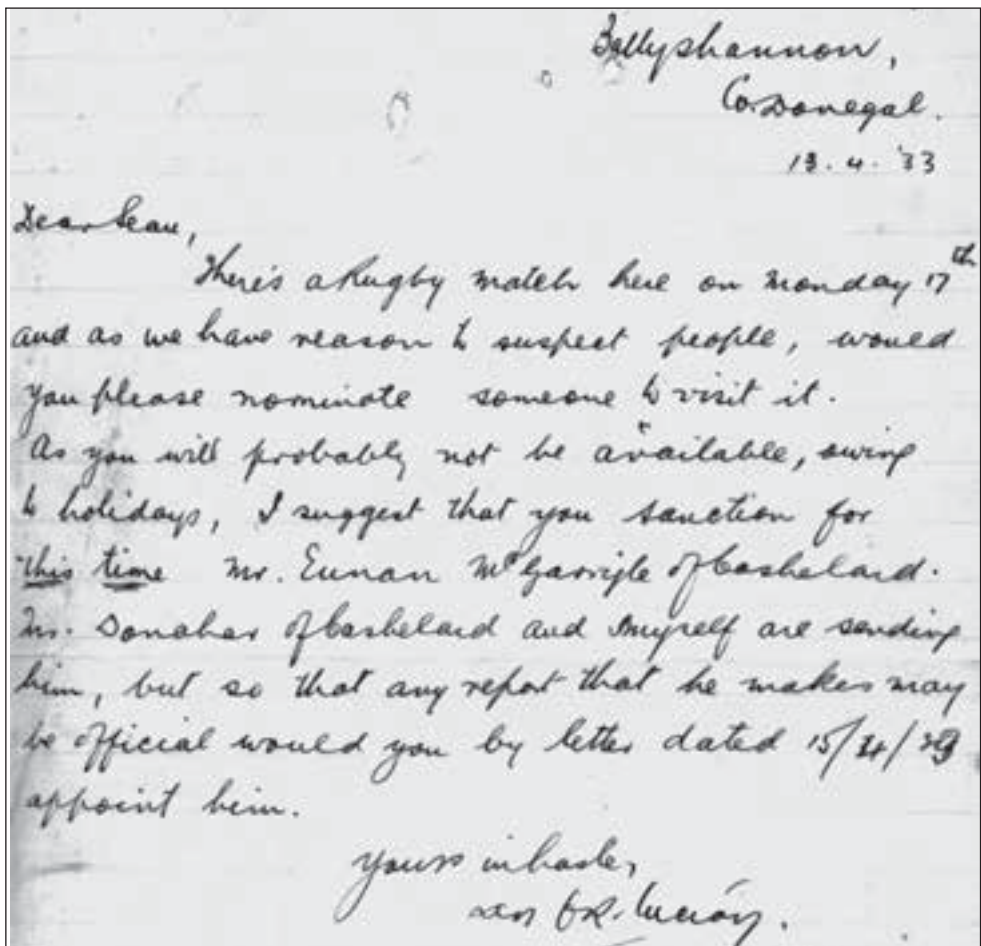 Ballyshannon,
Co. Donegal.
13. 4. '33
Dear Sean,
There's a Rugby match here on Monday 17th
and as we have reason to suspect people, would
you please nominate someone to visit it.
As you will probably not be available, owing
to holidays, I suggest that you sanction for
this time Mr. Eunan McGarrigle of Cashelard.
Mr. Donahar of Cashelard and myself are sending
him, but so that any report that he makes may
be official would you by letter dated
appoint him.
Yours in haste,